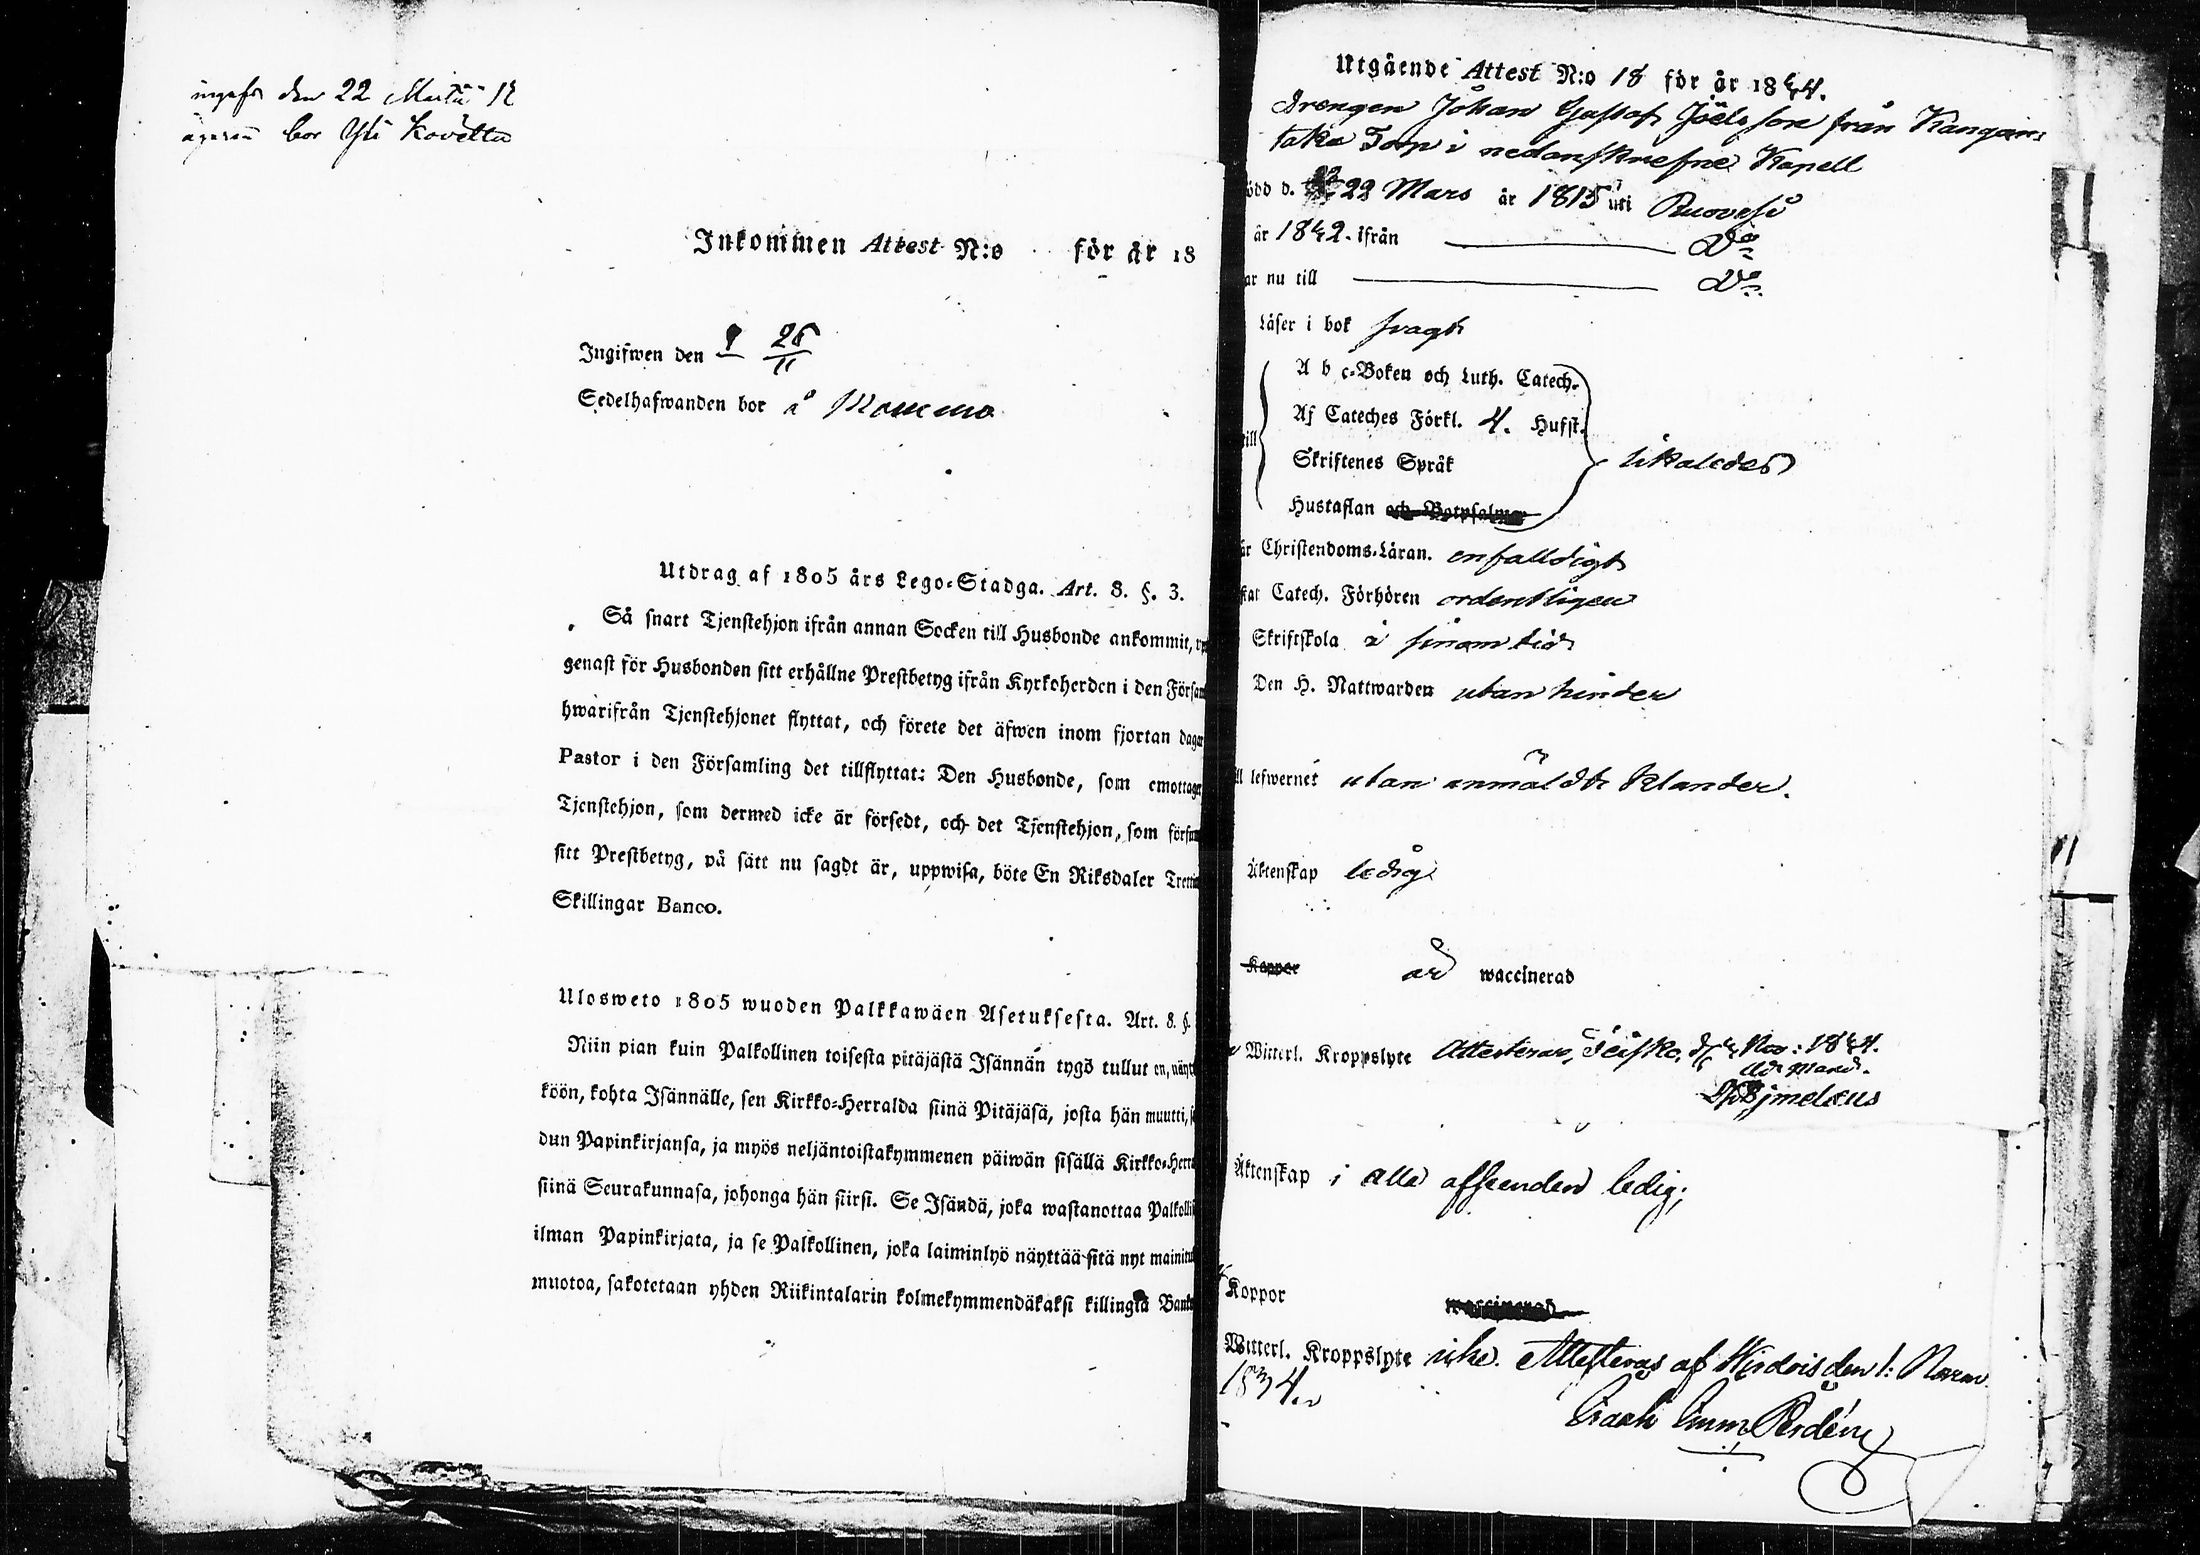 den 22 Martii
bor
Inkommen Attest N:o för år 18
Ingifwen den 9 26/11
Sedelhafwanden bor å Mommo
Utdrag af 1805 års Lego-Stadga. Art. 8. §. 3.
Så snart Tjenstehjon ifrån annan Socken till Husbonde ankommit,
genast för Husbonden sitt erhållne Prestbetyg ifrån Kyrkoherden i den
hwarifrån Tjenstehjonet flyttat, och förete det äfwen inom fjortan
Pastor i den Församling det tillflyttat: Den Husbonde, som
Tjenstehjon, som dermed icke är försedt, och det Tjenstehjon, som
sitt Prestbetyg, på sätt nu sagdt är, uppwisa, böte En Riksdaler
Skillingar Banco.
Ulosweto 1805 wuoden Palkkawäen Asetuksesta. Art. 8. §.
Niin pian kuin Palkollinen toisesta pitäjästä Isännän tygö tullut on,
köön, kohta Isännälle, sen Kirkko-Herralda siinä Pitäjäsä, josta hän muutti,
dun Papinkirjansa, ja myös neljäntoistakymmenen päiwän sisällä
siinä Seurakunnasa, johonga hän siirsi. Se Isändä, joka wastanottaa
ilman Papinkirjata, ja se Palkollinen, joka laiminlyö näyttää sitä nyt
muotoa, sakotetaan yhden Riikintalarin kolmekymmendäkaksi killingiä
Utgående Attest N:o 18 för år 1844.
Drengen Johan Gustaf Joelsson från
Torp i nedanskrefne Kapell
d. 22 Mars år 1815 uti Ruovesi
år 1842. ifrån Do
nu till Do
Läser i bok svagt
A b c-Boken och Luth. Catech.
Af Cateches Förkl. 4. Hufst.
Skriftenes Språk likaledes
Hustaflan och Botpsalmer
Christendoms-Läran. enfalldigt
Catech. Förhören ordentligen
Skriftskola i sinom tid
Den H. Nattwarden utan hinder
lefwernet utan anmäldt klander.
Äktenskap ledig
Koppor är waccinerad
Witterl. Kroppslyte Attesteras, Teisko, d. 4 Nov: 1844.
Bjmelæus
Äktenskap i alla afseenden ledig;
Koppor waccinerad
Witterl. Kroppslyte icke. Attesteras af Wirdois den 1: Novem.
1834.